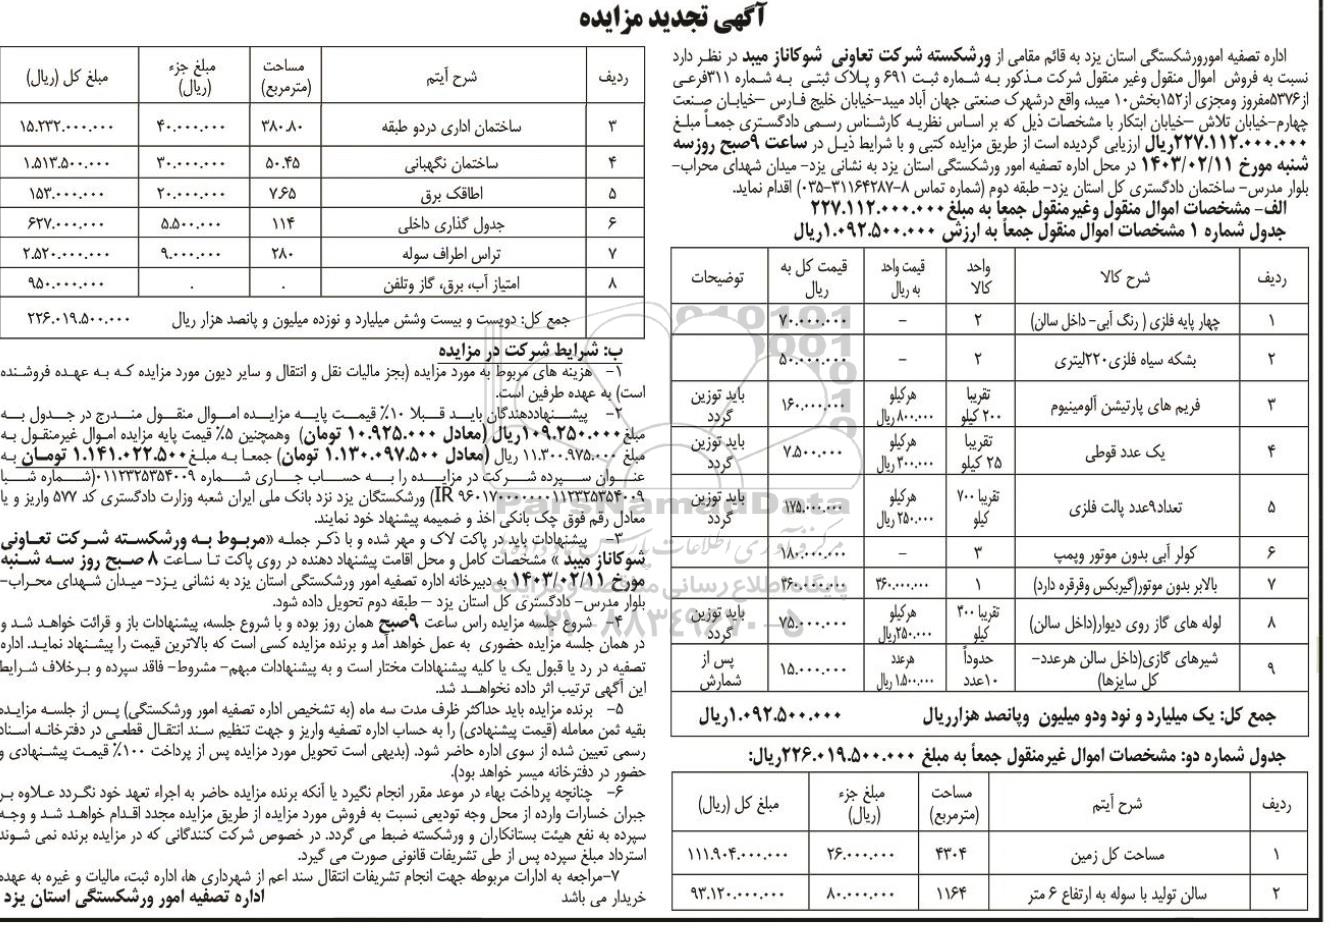 آگهی تجدید مزایده
اداره تصفیه امورورشکستگی استان یزد به قائم مقامی از ورشکسته شرکت تعاونی شوکاناز میبد در نظر دارد
نسبت به فروش اموال منقول وغیر منقول شرکت مذکور به شماره ثبت ۶۹۱ و پلاک ثبتی به شماره ۳۱۱فرعی
از۵۳۷۶مفروز ومجزی از۱۵۲بخش۱۰ میبد، واقع درشهرک صنعتی جهان آباد میبد-خیابان خلیج فارس –خیابان صنعت
چهارم-خیابان تلاش –خیابان ابتکار با مشخصات ذیل که بر اساس نظریه کارشناس رسمی دادگستری جمعاً مبلغ
۲۲۷.۱۱۲.۰۰۰.۰۰۰ریال ارزیابی گردیده است از طریق مزایده کتبی و با شرایط ذیل در ساعت ۹صبح روزسه
شنبه مورخ ۱۴۰۳/۰۲/۱۱ در محل اداره تصفیه امور ورشکستگی استان یزد به نشانی یزد- میدان شهدای محراب-
بلوار مدرس- ساختمان دادگستری کل استان یزد- طبقه دوم (شماره تماس ۸-۳۱۱۶۴۲۸۷-۰۳۵) اقدام نماید.
الف- مشخصات اموال منقول وغیرمنقول جمعاً به مبلغ۲۲۷.۱۱۲.۰۰۰.۰۰۰
جدول شماره ۱ مشخصات اموال منقول جمعاً به ارزش ۱.۰۹۲.۵۰۰.۰۰۰ریال
ردیف | شرح کالا | واحد کالا | قیمت واحد به ریال | قیمت کل به ریال | توضیحات
۱ | چهار پایه فلزی ( رنگ آبی- داخل سالن) | ۲ | – | ۷۰.۰۰۰.۰۰۰
۲ | بشکه سیاه فلزی۲۲۰لیتری | ۲ | – | ۵۰.۰۰۰.۰۰۰
۳ | فریم های پارتیشن آلومینیوم | تقریبا ۲۰۰ کیلو | هرکیلو ۸۰۰.۰۰۰ریال | ۱۶۰.۰۰۰.۰۰۰ | باید توزین گردد
۴ | یک عدد قوطی | تقریبا ۲۵ کیلو | هرکیلو ۳۰۰.۰۰۰ ریال | ۷.۵۰۰.۰۰۰ | باید توزین گردد
۵ | تعداد۹عدد پالت فلزی | تقریبا ۷۰۰ کیلو | هرکیلو ۲۵۰.۰۰۰ ریال | ۱۷۵.۰۰۰.۰۰۰ | باید توزین گردد
۶ | کولر آبی بدون موتور وپمپ | ۳ | – | ۱۸۰.۰۰۰.۰۰۰
۷ | بالابر بدون موتور(گیربکس وقرقره دارد) | ۱ | ۳۶۰.۰۰۰.۰۰۰ | ۳۶۰.۰۰۰.۰۰۰
۸ | لوله های گاز روی دیوار(داخل سالن) | تقریبا ۳۰۰ کیلو | هرکیلو ۲۵۰.۰۰۰ریال | ۷۵.۰۰۰.۰۰۰ | باید توزین گردد
۹ | شیرهای گازی(داخل سالن هرعدد- کل سایزها) | حدوداً ۱۰عدد | هرعدد ۱.۵۰۰.۰۰۰ ریال | ۱۵.۰۰۰.۰۰۰ | پس از شمارش
جمع کل: یک میلیارد و نود ودو میلیون وپانصد هزارریال ۱.۰۹۲.۵۰۰.۰۰۰ریال
جدول شماره دو: مشخصات اموال غیرمنقول جمعاً به مبلغ ۲۲۶.۰۱۹.۵۰۰.۰۰۰ریال:
ردیف | شرح آیتم | مساحت (مترمربع) | مبلغ جزء (ریال) | مبلغ کل (ریال)
۱ | مساحت کل زمین | ۴۳۰۴ | ۲۶.۰۰۰.۰۰۰ | ۱۱۱.۹۰۴.۰۰۰.۰۰۰
۲ | سالن تولید با سوله به ارتفاع ۶ متر | ۱۱۶۴ | ۸۰.۰۰۰.۰۰۰ | ۹۳.۱۲۰.۰۰۰.۰۰۰
ردیف | شرح آیتم | مساحت (مترمربع) | مبلغ جزء (ریال) | مبلغ کل (ریال)
۳ | ساختمان اداری دردو طبقه | ۳۸۰.۸۰ | ۴۰.۰۰۰.۰۰۰ | ۱۵.۲۳۲.۰۰۰.۰۰۰
۴ | ساختمان نگهبانی | ۵۰.۴۵ | ۳۰.۰۰۰.۰۰۰ | ۱.۵۱۳.۵۰۰.۰۰۰
۵ | اطاقک برق | ۷.۶۵ | ۲۰.۰۰۰.۰۰۰ | ۱۵۳.۰۰۰.۰۰۰
۶ | جدول گذاری داخلی | ۱۱۴ | ۵.۵۰۰.۰۰۰ | ۶۲۷.۰۰۰.۰۰۰
۷ | تراس اطراف سوله | ۲۸۰ | ۹.۰۰۰.۰۰۰ | ۲.۵۲۰.۰۰۰.۰۰۰
۸ | امتیاز آب، برق، گاز وتلفن | ۰ | ۰ | ۹۵۰.۰۰۰.۰۰۰
جمع کل: دویست و بیست وشش میلیارد و نوزده میلیون و پانصد هزار ریال ۲۲۶.۰۱۹.۵۰۰.۰۰۰
ب: شرایط شرکت در مزایده
۱- هزینه های مربوط به مورد مزایده (بجز مالیات نقل و انتقال و سایر دیون مورد مزایده که به عهده فروشنده
است) به عهده طرفین است.
۲- پیشنهاددهندگان باید قبلا ۱۰٪ قیمت پایه مزایده اموال منقول مندرج در جدول به
مبلغ۱۰۹.۲۵۰.۰۰۰ریال (معادل ۱۰.۹۲۵.۰۰۰ تومان) وهمچنین ۵٪ قیمت پایه مزایده اموال غیرمنقول به
مبلغ ۱۱.۳۰۰.۹۷۵.۰۰۰ ریال (معادل ۱.۱۳۰.۰۹۷.۵۰۰ تومان) جمعا به مبلغ۱.۱۴۱.۰۲۲.۵۰۰ تومان به
عنوان سپرده شرکت در مزایده را به حساب جاری شماره ۰۱۱۲۳۲۵۳۵۴۰۰۹(شماره شبا
IR ۹۶۰۱۷۰۰۰۰۰۰۰۱۱۲۳۲۵۳۵۴۰۰۹) ورشکستگان یزد نزد بانک ملی ایران شعبه وزارت دادگستری کد ۵۷۷ واریز و یا
معادل رقم فوق چک بانکی اخذ و ضمیمه پیشنهاد خود نمایند.
۳- پیشنهادات باید در پاکت لاک و مهر شده و با ذکر جمله «مربوط به ورشکسته شرکت تعاونی
شوکاناز میبد » مشخصات کامل و محل اقامت پیشنهاد دهنده در روی پاکت تا ساعت ۸ صبح روز سه شنبه
مورخ ۱۴۰۳/۰۲/۱۱ به دبیرخانه اداره تصفیه امور ورشکستگی استان یزد به نشانی یزد- میدان شهدای محراب-
بلوار مدرس- دادگستری کل استان یزد – طبقه دوم تحویل داده شود.
۴- شروع جلسه مزایده راس ساعت ۹صبح همان روز بوده و با شروع جلسه، پیشنهادات باز و قرائت خواهد شد و
در همان جلسه مزایده حضوری به عمل خواهد آمد و برنده مزایده کسی است که بالاترین قیمت را پیشنهاد نماید. اداره
تصفیه در رد یا قبول یک یا کلیه پیشنهادات مختار است و به پیشنهادات مبهم- مشروط- فاقد سپرده و برخلاف شرایط
این آگهی ترتیب اثر داده نخواهد شد.
۵- برنده مزایده باید حداکثر ظرف مدت سه ماه (به تشخیص اداره تصفیه امور ورشکستگی) پس از جلسه مزایده
بقیه ثمن معامله (قیمت پیشنهادی) را به حساب اداره تصفیه واریز و جهت تنظیم سند انتقال قطعی در دفترخانه اسناد
رسمی تعیین شده از سوی اداره حاضر شود. (بدیهی است تحویل مورد مزایده پس از پرداخت ۱۰۰٪ قیمت پیشنهادی و
حضور در دفترخانه میسر خواهد بود).
۶- چنانچه پرداخت بهاء در موعد مقرر انجام نگیرد یا آنکه برنده مزایده حاضر به اجراء تعهد خود نگردد علاوه بر
جبران خسارات وارده از محل وجه تودیعی نسبت به فروش مورد مزایده از طریق مزایده مجدد اقدام خواهد شد و وجه
سپرده به نفع هیئت بستانکاران و ورشکسته ضبط می گردد. در خصوص شرکت کنندگانی که در مزایده برنده نمی شوند
استرداد مبلغ سپرده پس از طی تشریفات قانونی صورت می گیرد.
۷-مراجعه به ادارات مربوطه جهت انجام تشریفات انتقال سند اعم از شهرداری ها، اداره ثبت، مالیات و غیره به عهده
خریدار می باشد
اداره تصفیه امور ورشکستگی استان یزد
ParsNamadData